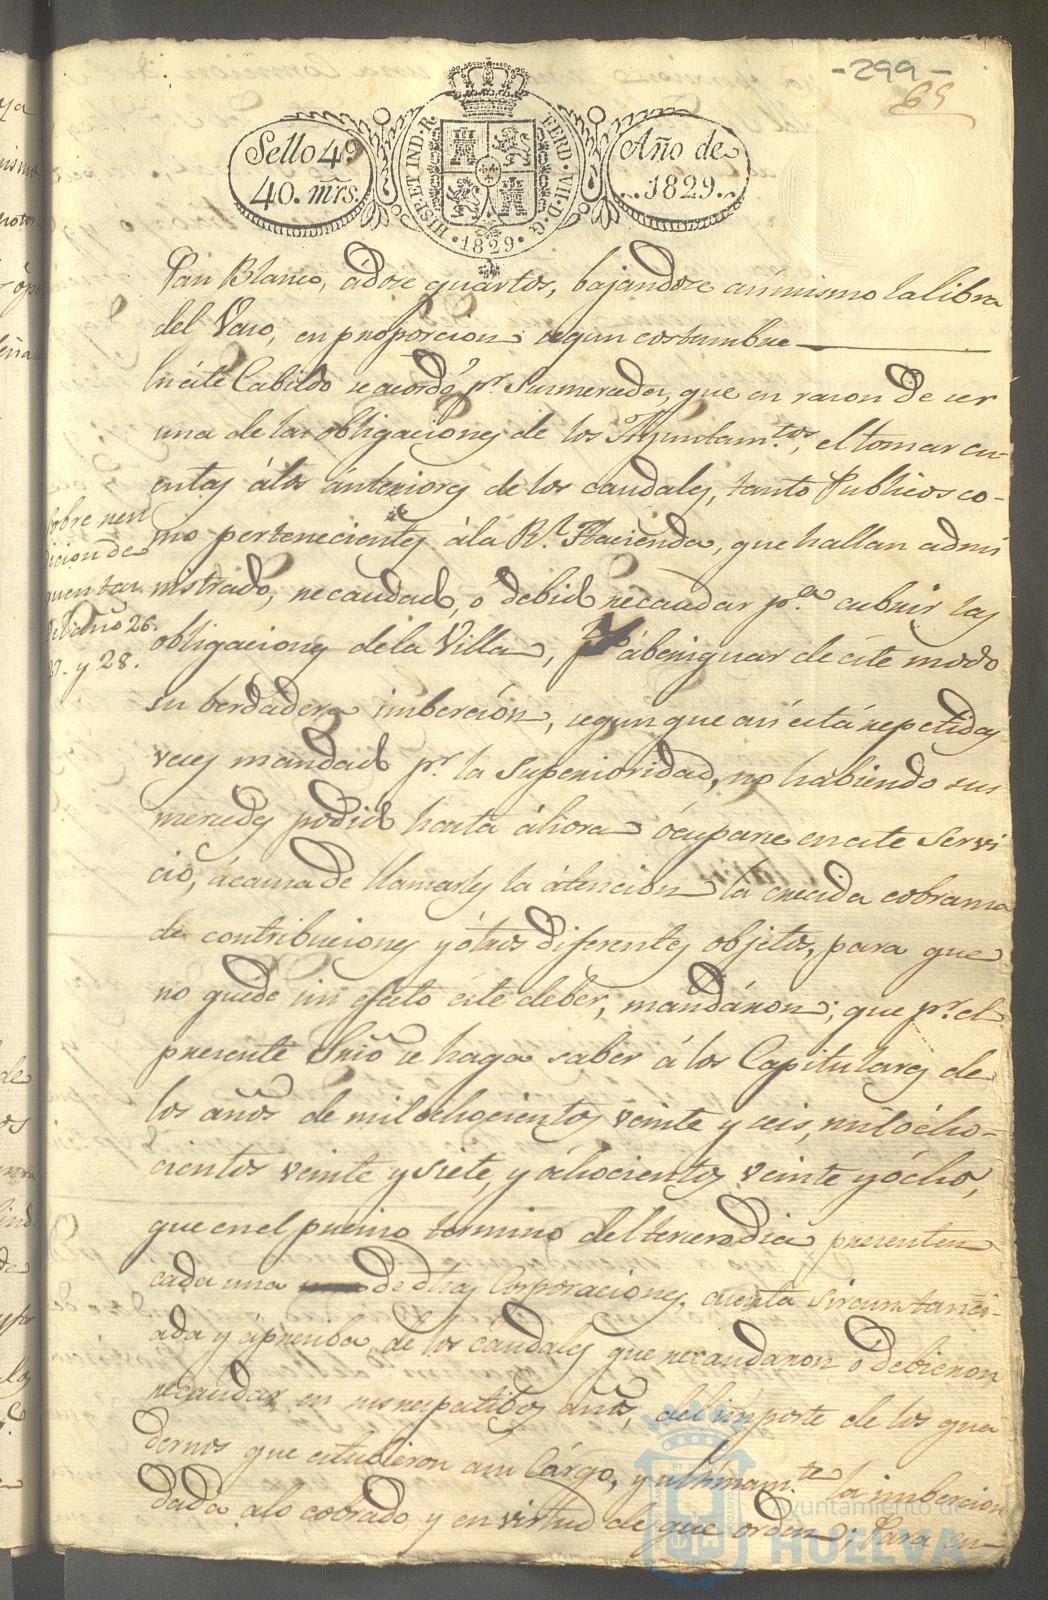 -299-
65
Sello 4º
40. mrs.
HISP. ET IND. R.
FERD. VII. D. G.
·1829·
Año de
1829.
Pan Blanco, ádoze quártos, bajandose asimismo la libra
del Vaso, en proporcion segun costumbre
En éste Cabildo se acordó pr. Susmercedes, que en rason de ser
una de las obligaciones de los Ayuntamtos, el tomar cu-
entas álos ánteriores de los caudales, tanto Publicos co-
mo pertenecientes ála Rl. Hacienda, que hallan admi
nistrado, recaudado, ó debido recaudar pa. cubrir las
obligaciones dela Villa, pa ábeniguar de éste modo
su berdadera imberción, segun que así está repetidas
veces mandado pr. la Superioridad, no habiendo sus
mercedes podido hasta áhora ócuparse en éste servi
cio, ácausa de llamarles la átencion la crecida cobransa
de contribuciones y ótros diferentes objetos, para que
no quede sin efecto éste deber, mandáron; que pr. el
presente Srio se haga saber á los Capitulares de
los años de mil ochocientos veinte y seis, mil ócho-
cientos veinte y siete, y óhocientos veinte y ócho,
que en el presiso termino del tersero dia presenten
cada una de dhas Corporaciones, cuenta sircunstanci-
ada y ápreciba, de los cáudales que recaudaron ó debieron
recaudar en sus respectibos años, del importe de los qua
dernos que estubieron á su Cárgo, y ultimamte. la imbercion
dada alo cobrado y en virtud de que orden; Para en-
Sobre ren
dicion de
quentas
del año 26.
27. y 28.
Ayuntamiento de
HUELVA